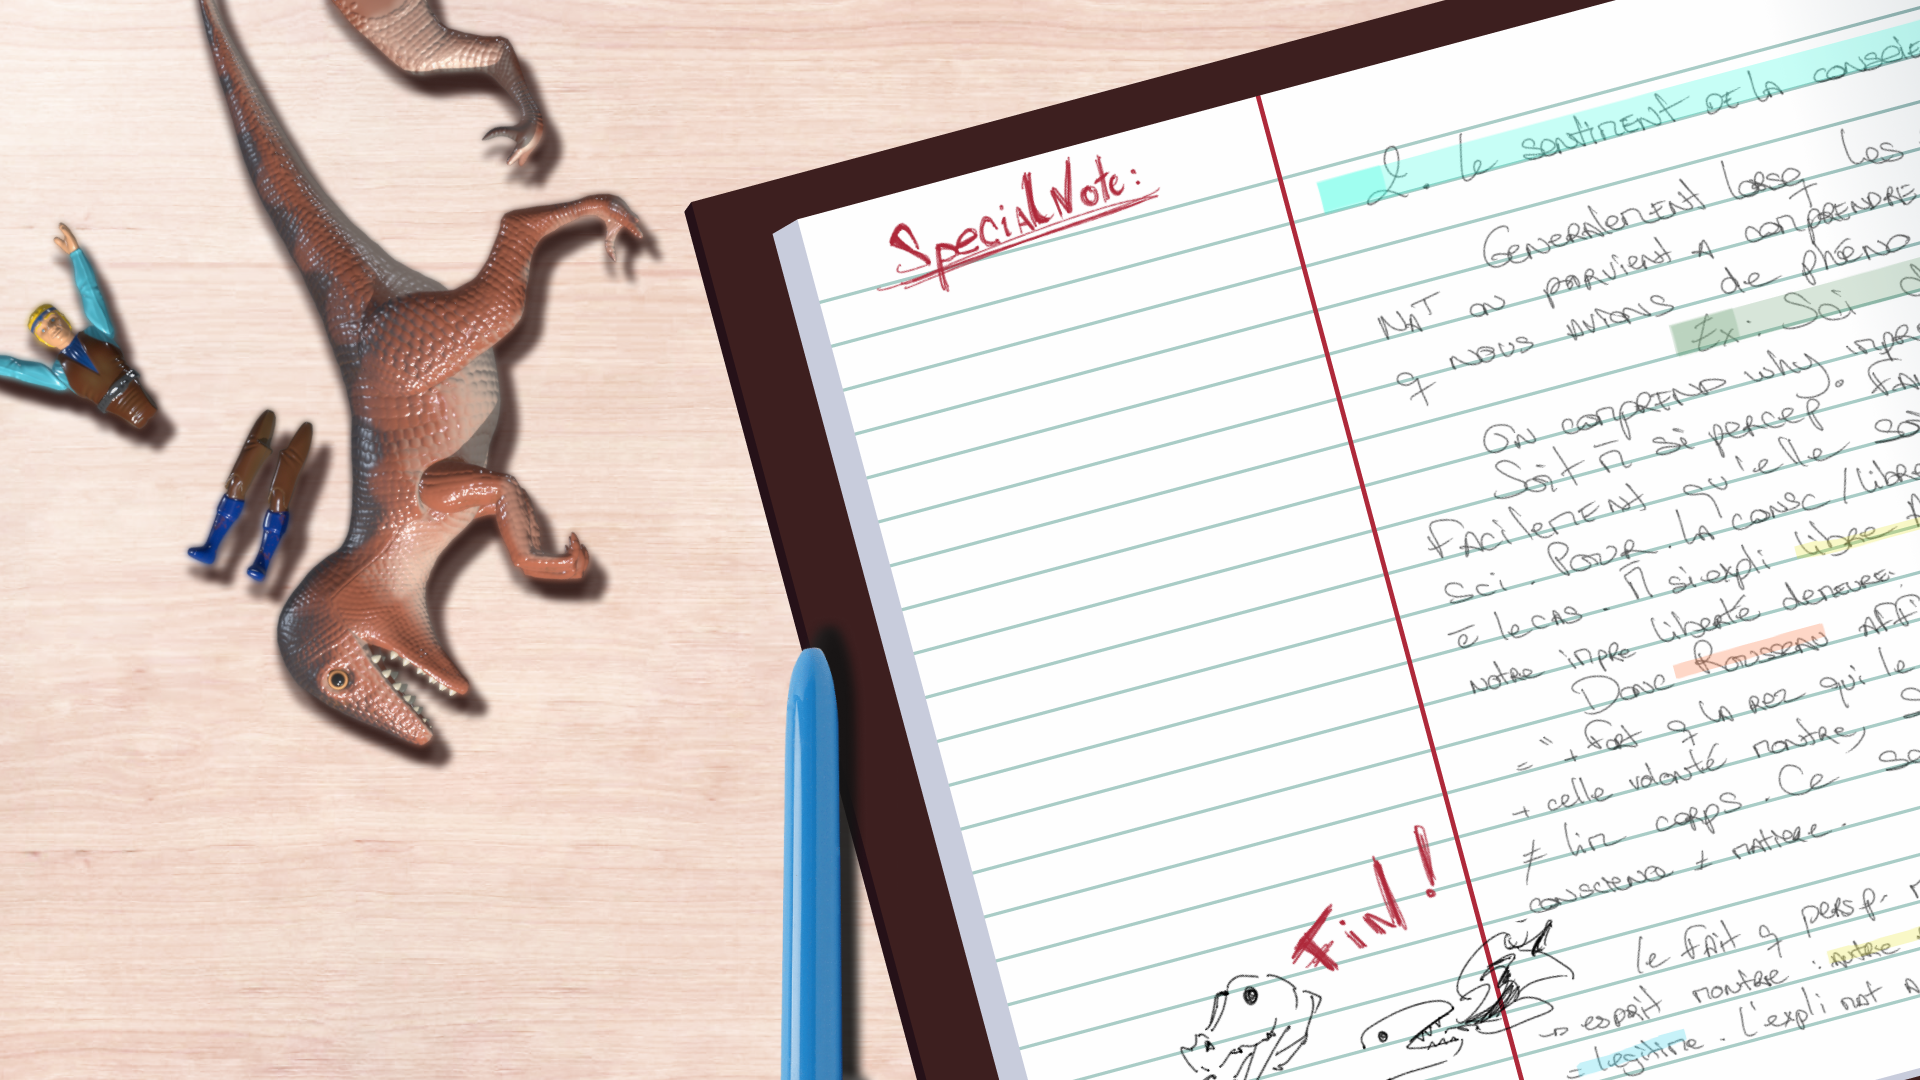 Special Note:
2. Le sentiment de la conscie
Generalement lorsq les
nat on parvient a comprendre
q nous avions de phéno
Ex: Soi
On comprend why impre
Soit si percep. Fai
Facilement qu'elle soi
sci. Pour la consc/libre
ē le cas. si expli libre
notre impre liberté demeure.
Donc Rousseau affi
= " + fort q la rez qui le
+ celle volonté montre, S
≠ corps. Ce se
conscience ≠ matiere.
Le fait q persp.
esprit montre : autre
= legitime. L'expli nat
Fin!